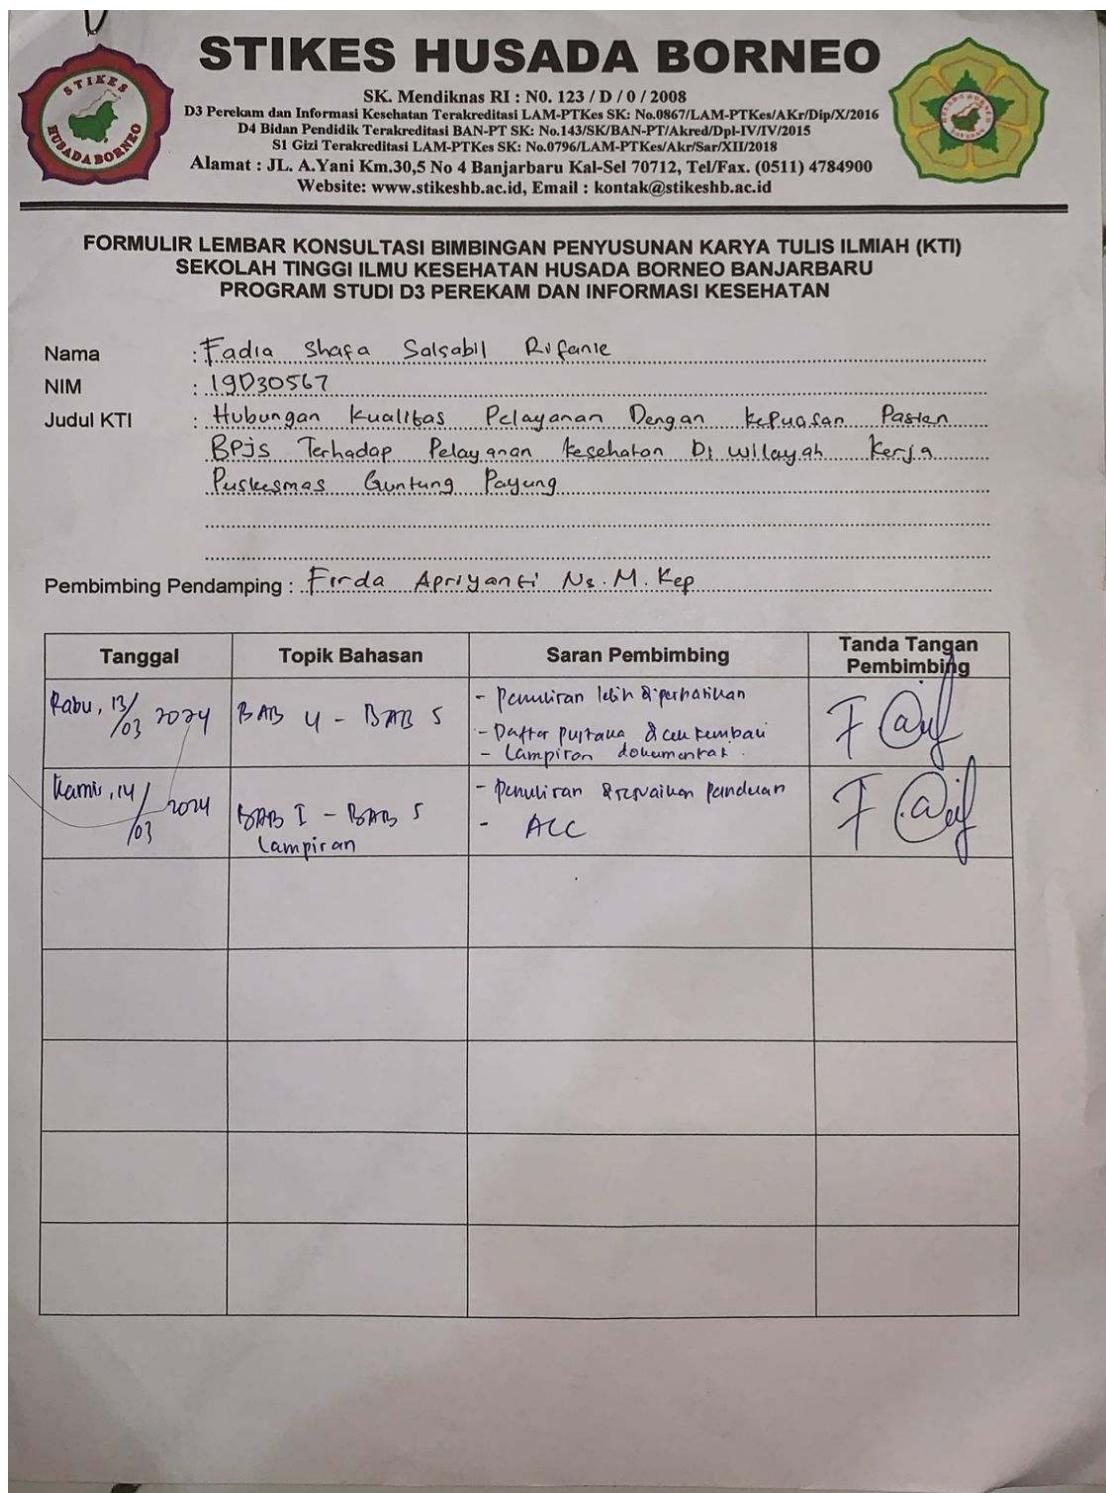 STIKES HUSADA BORNEO
STIKES
HUSADA BORNEO
SK. Mendiknas RI : N0. 123 / D / 0 / 2008
D3 Perekam dan Informasi Kesehatan Terakreditasi LAM-PTKes SK: No.0867/LAM-PTKes/AKr/Dip/X/2016
D4 Bidan Pendidik Terakreditasi BAN-PT SK: No.143/SK/BAN-PT/Akred/Dpl-IV/IV/2015
S1 Gizi Terakreditasi LAM-PTKes SK: No.0796/LAM-PTKes/Akr/Sar/XII/2018
Alamat : JL. A.Yani Km.30,5 No 4 Banjarbaru Kal-Sel 70712, Tel/Fax. (0511) 4784900
Website: www.stikeshb.ac.id, Email : kontak@stikeshb.ac.id
FORMULIR LEMBAR KONSULTASI BIMBINGAN PENYUSUNAN KARYA TULIS ILMIAH (KTI)
SEKOLAH TINGGI ILMU KESEHATAN HUSADA BORNEO BANJARBARU
PROGRAM STUDI D3 PEREKAM DAN INFORMASI KESEHATAN
Nama : Fadia Shafa Salsabil Rifanie
NIM : 19D30567
Judul KTI : Hubungan Kualitas Pelayanan Dengan Kepuasan Pasien
BPJS Terhadap Pelayanan Kesehatan Di Wilayah Kerja
Puskesmas Guntung Payung
Pembimbing Pendamping : Firda Apriyanti Ns. M. Kep
Tanggal Topik Bahasan Saran Pembimbing Tanda Tangan Pembimbing
Rabu, 13/03 2024 BAB 4 - BAB 5 - Penulisan lebih diperhatikan
- Daftar pustaka di cek kembali
- Lampiran dokumentasi.
Kamis, 14/03 2024 BAB I - BAB 5 - Penulisan disesuaikan panduan
Lampiran - ACC